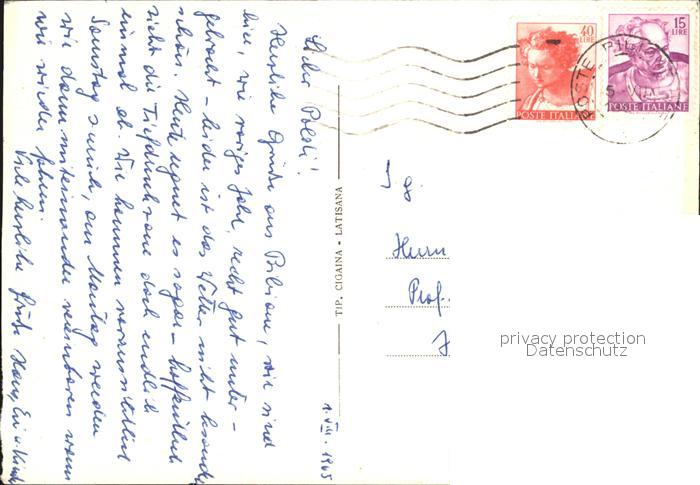 Lieber Poldi!
Herzliche Grüße aus Bibione, wir sind
hier, wie voriges Jahr, recht gut unter-
gebracht – leider ist das Wetter nicht besonders
schön. Heute regnet es sogar – hoffentlich
zieht die Tiefdruckzone doch endlich
einmal ab. Wir kommen voraussichtlich
Sonntag zurück, am Montag werden
wir dann miteinander vereinbaren wann
wir wieder fahren.
Viele herzliche Grüße
1.VIII.1965
TIP. CIGAINA - LATISANA
40
LIRE
POSTE ITALIANE
15
LIRE
POSTE ITALIANE
POSTE BIBIONE
Sg.
Herrn
Prof.
privacy protection
Datenschutz